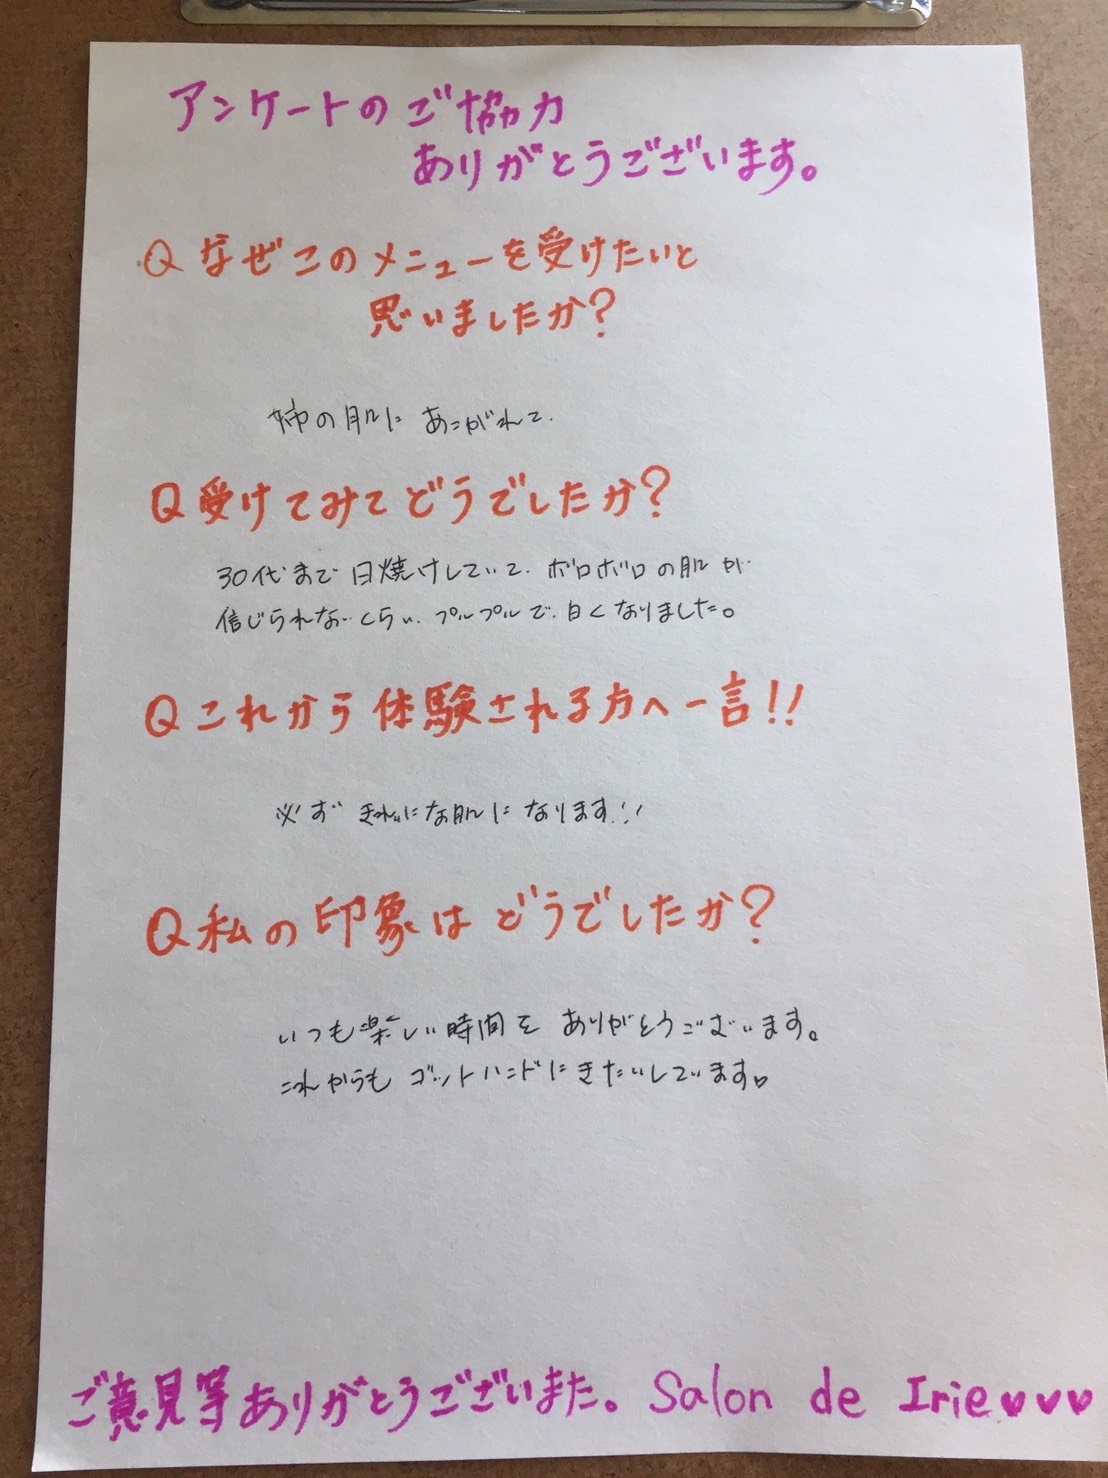 アンケートのご協力
ありがとうございます。
Q なぜこのメニューを受けたいと
思いましたか?
姉の肌に あこがれて.
Q 受けてみてどうでしたか?
30代まで 日焼けしていて、ボロボロの肌が
信じられないくらい、プルプルで、白くなりました。
Q これから体験される方へ一言!!
必ず きれいな肌に なります!!
Q 私の印象は どうでしたか?
いつも楽しい時間を ありがとうございます。
これからも ゴットハンドにきたいしています♡
ご意見等ありがとうございまた。 Salon de Irie♥♥♥